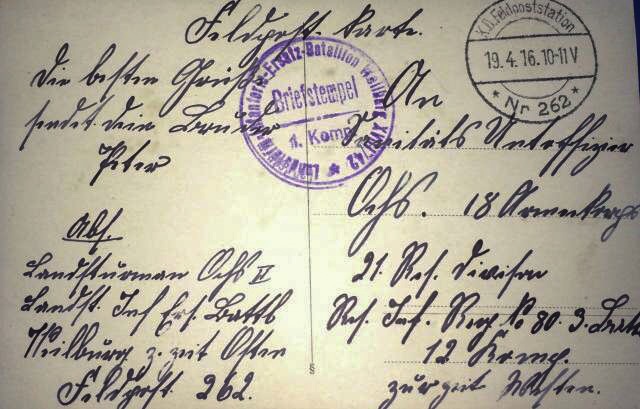 Feldpost-Karte.
K.D. Feldpoststation
19.4.16. 10-11 V
* Nr 262 *
Landsturm Infanterie-Ersatz-Bataillon Weilburg XVIII/42
Briefstempel
4. Komp.
Die besten Grüße
sendet dein Bruder
Peter
Abs.
Landsturman Ochs II
Landst. Inf Ers. Battl
Weilburg z. zeit Osten
Feldpost 262.
An
Sanitäts Unteroffizier
Ochs. 18 Armeekorps
21. Res. Divison
Res. Inf. Reg. No 80. 3. Batt
12 Komp.
zur zeit Westen.
§